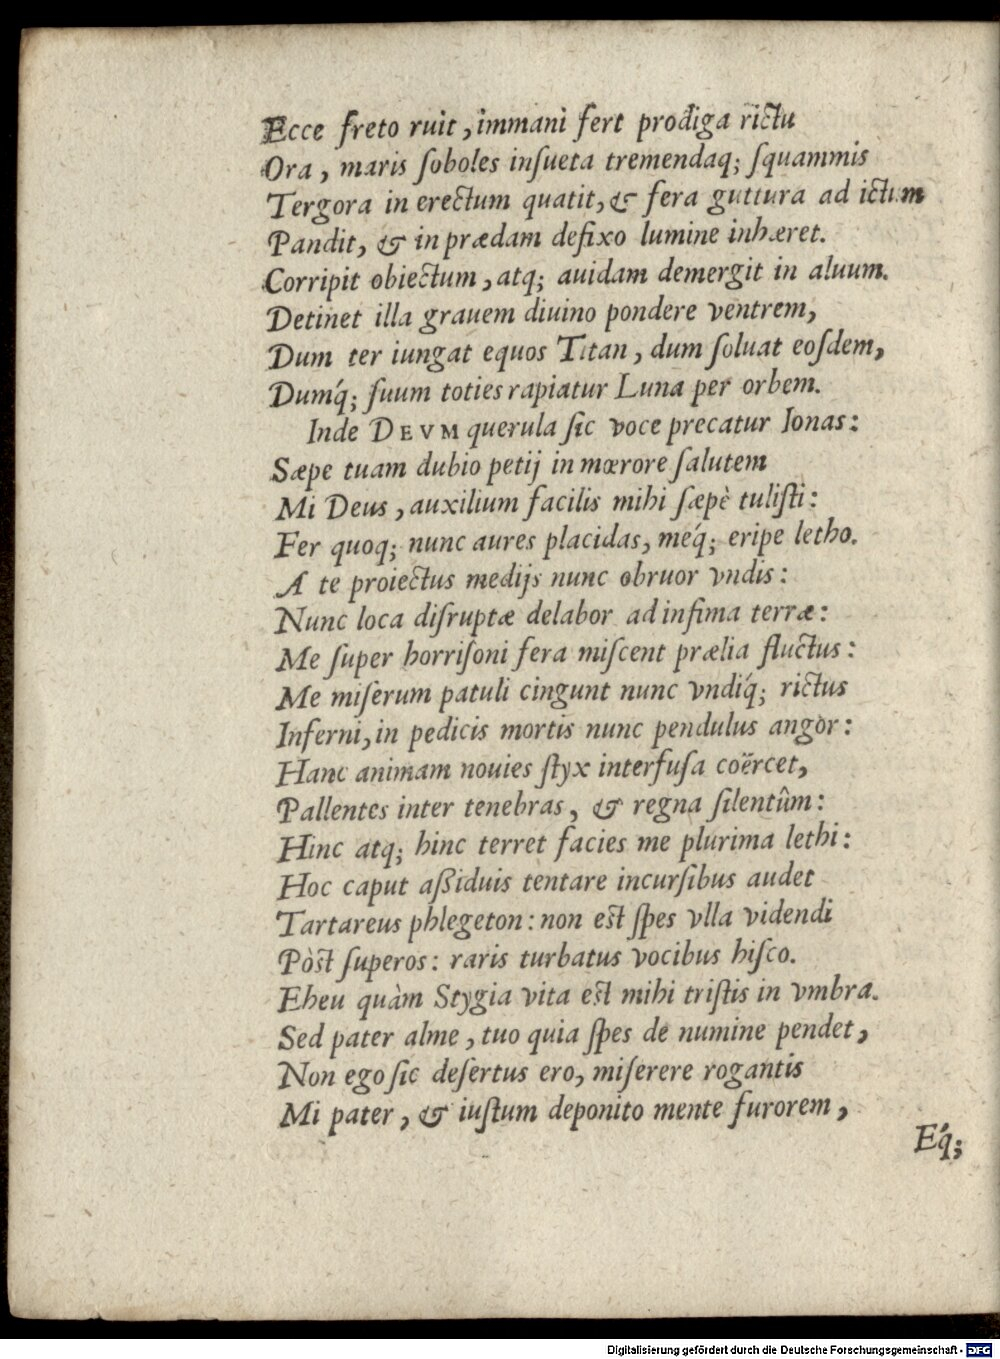 Ecce freto ruit, immani fert prodiga rictu
Ora, maris ſoboles inſueta tremendaq; ſquammis
Tergora in erectum quatit, & fera guttura ad ictum
Pandit, & in prædam defixo lumine inhæret.
Corripit obiectum, atq; auidam demergit in aluum.
Detinet illa grauem diuino pondere ventrem,
Dum ter iungat equos Titan, dum ſoluat eoſdem,
Dumq́; ſuum toties rapiatur Luna per orbem.
Inde DEVM querula ſic voce precatur Ionas:
Sæpe tuam dubio petij in mœrore ſalutem
Mi Deus, auxilium facilis mihi ſæpè tuliſti:
Fer quoq; nunc aures placidas, meq́; eripe letho.
A te proiectus medijs nunc obruor vndis:
Nunc loca diſruptæ delabor ad infima terræ:
Me ſuper horriſoni fera miſcent prælia fluctus:
Me miſerum patuli cingunt nunc vndiq́; rictus
Inferni, in pedicis mortis nunc pendulus angor:
Hanc animam nouies ſtyx interfuſa coërcet,
Pallentes inter tenebras, & regna ſilentûm:
Hinc atq; hinc terret facies me plurima lethi:
Hoc caput aßiduis tentare incurſibus audet
Tartareus phlegeton: non est ſpes vlla videndi
Pòst ſuperos: raris turbatus vocibus hiſco.
Eheu quàm Stygia vita est mihi triſtis in vmbra.
Sed pater alme, tuo quia ſpes de numine pendet,
Non ego ſic deſertus ero, miſerere rogantis
Mi pater, & iuſtum deponito mente furorem,
Eq́;
Digitalisierung gefördert durch die Deutsche Forschungsgemeinschaft - DFG